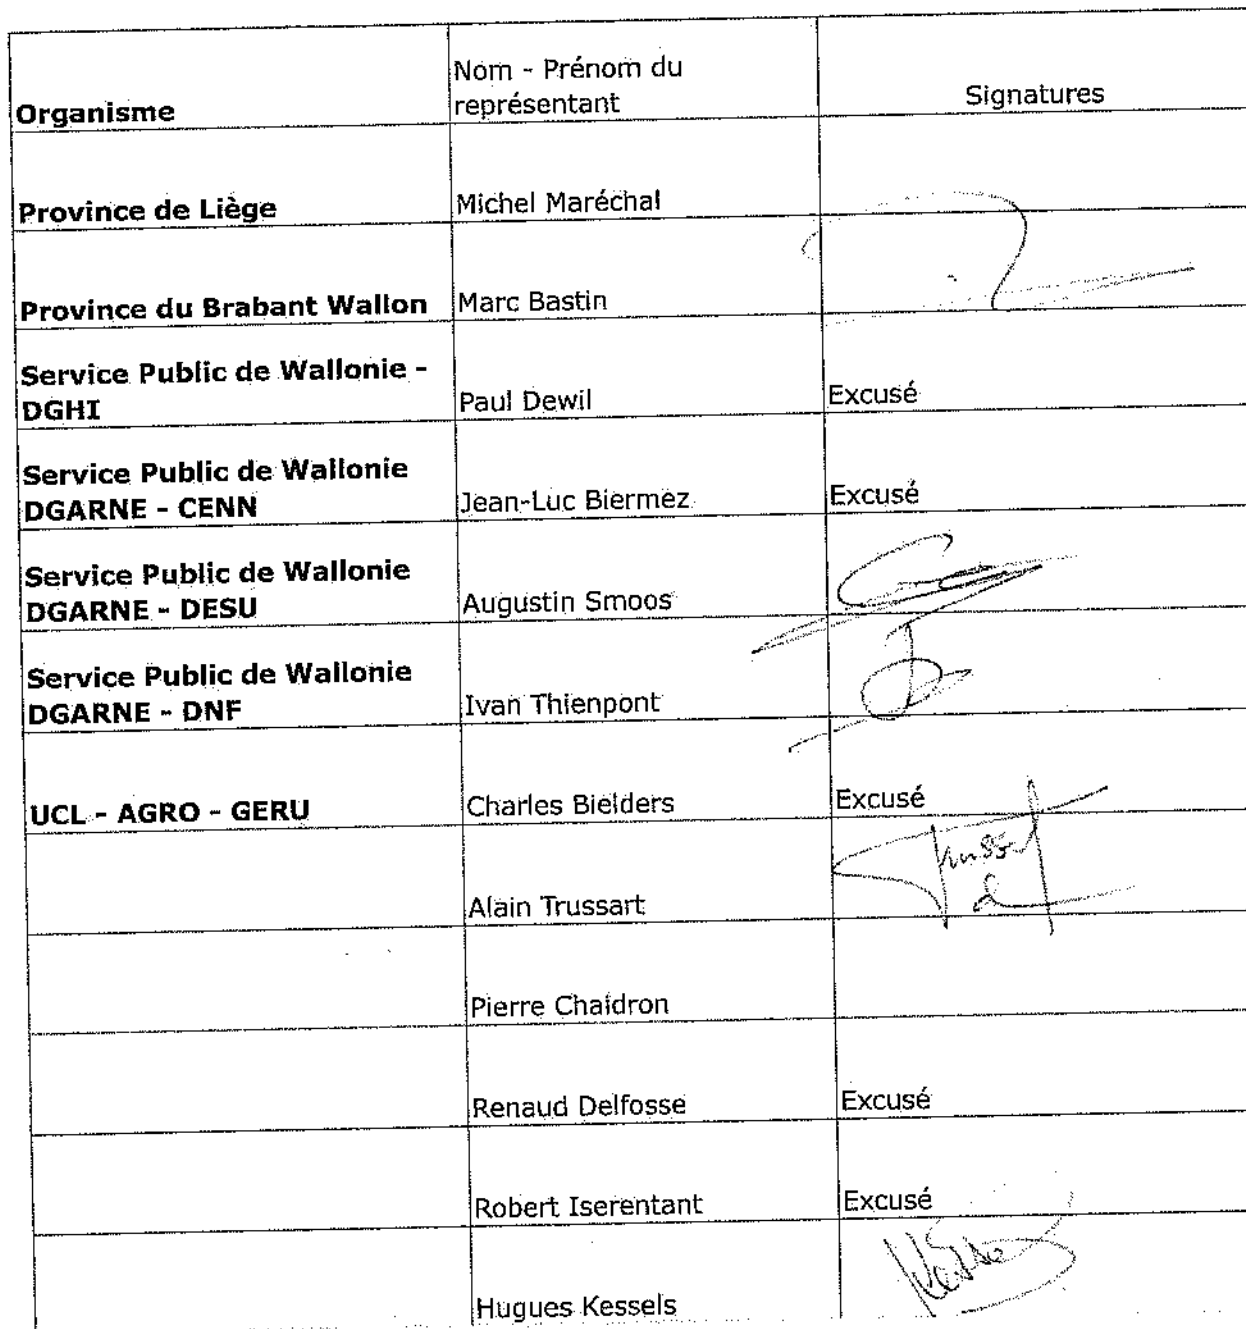 Organisme
Nom - Prénom du
représentant
Signatures
Province de Liège
Michel Maréchal
Province du Brabant Wallon
Marc Bastin
Service Public de Wallonie -
DGHI
Paul Dewil
Excusé
Service Public de Wallonie
DGARNE - CENN
Jean-Luc Biermez
Excusé
Service Public de Wallonie
DGARNE - DESU
Augustin Smoos
Service Public de Wallonie
DGARNE - DNF
Ivan Thienpont
UCL - AGRO - GERU
Charles Bielders
Excusé
Alain Trussart
Pierre Chaldron
Renaud Delfosse
Excusé
Robert Iserentant
Excusé
Hugues Kessels